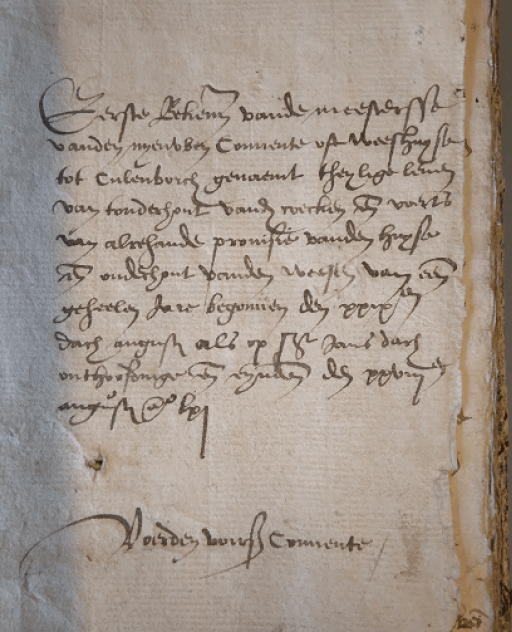 Eerste Rekenn vande meestersse
vanden nyeuwen Convente oft weeshuyse
tot Culenborch genaemt theylige leven
van tonderhout vand coecken en voorts
van alrehande provisie vanden huyse
en onderhout vanden weesen van een
geheelen Jare begonnen den xxix en
dach augusti als op St Jans dach
onthoofdinge en eynden den xxviii en
augusti Ao lxi
Voerden voirs Convente